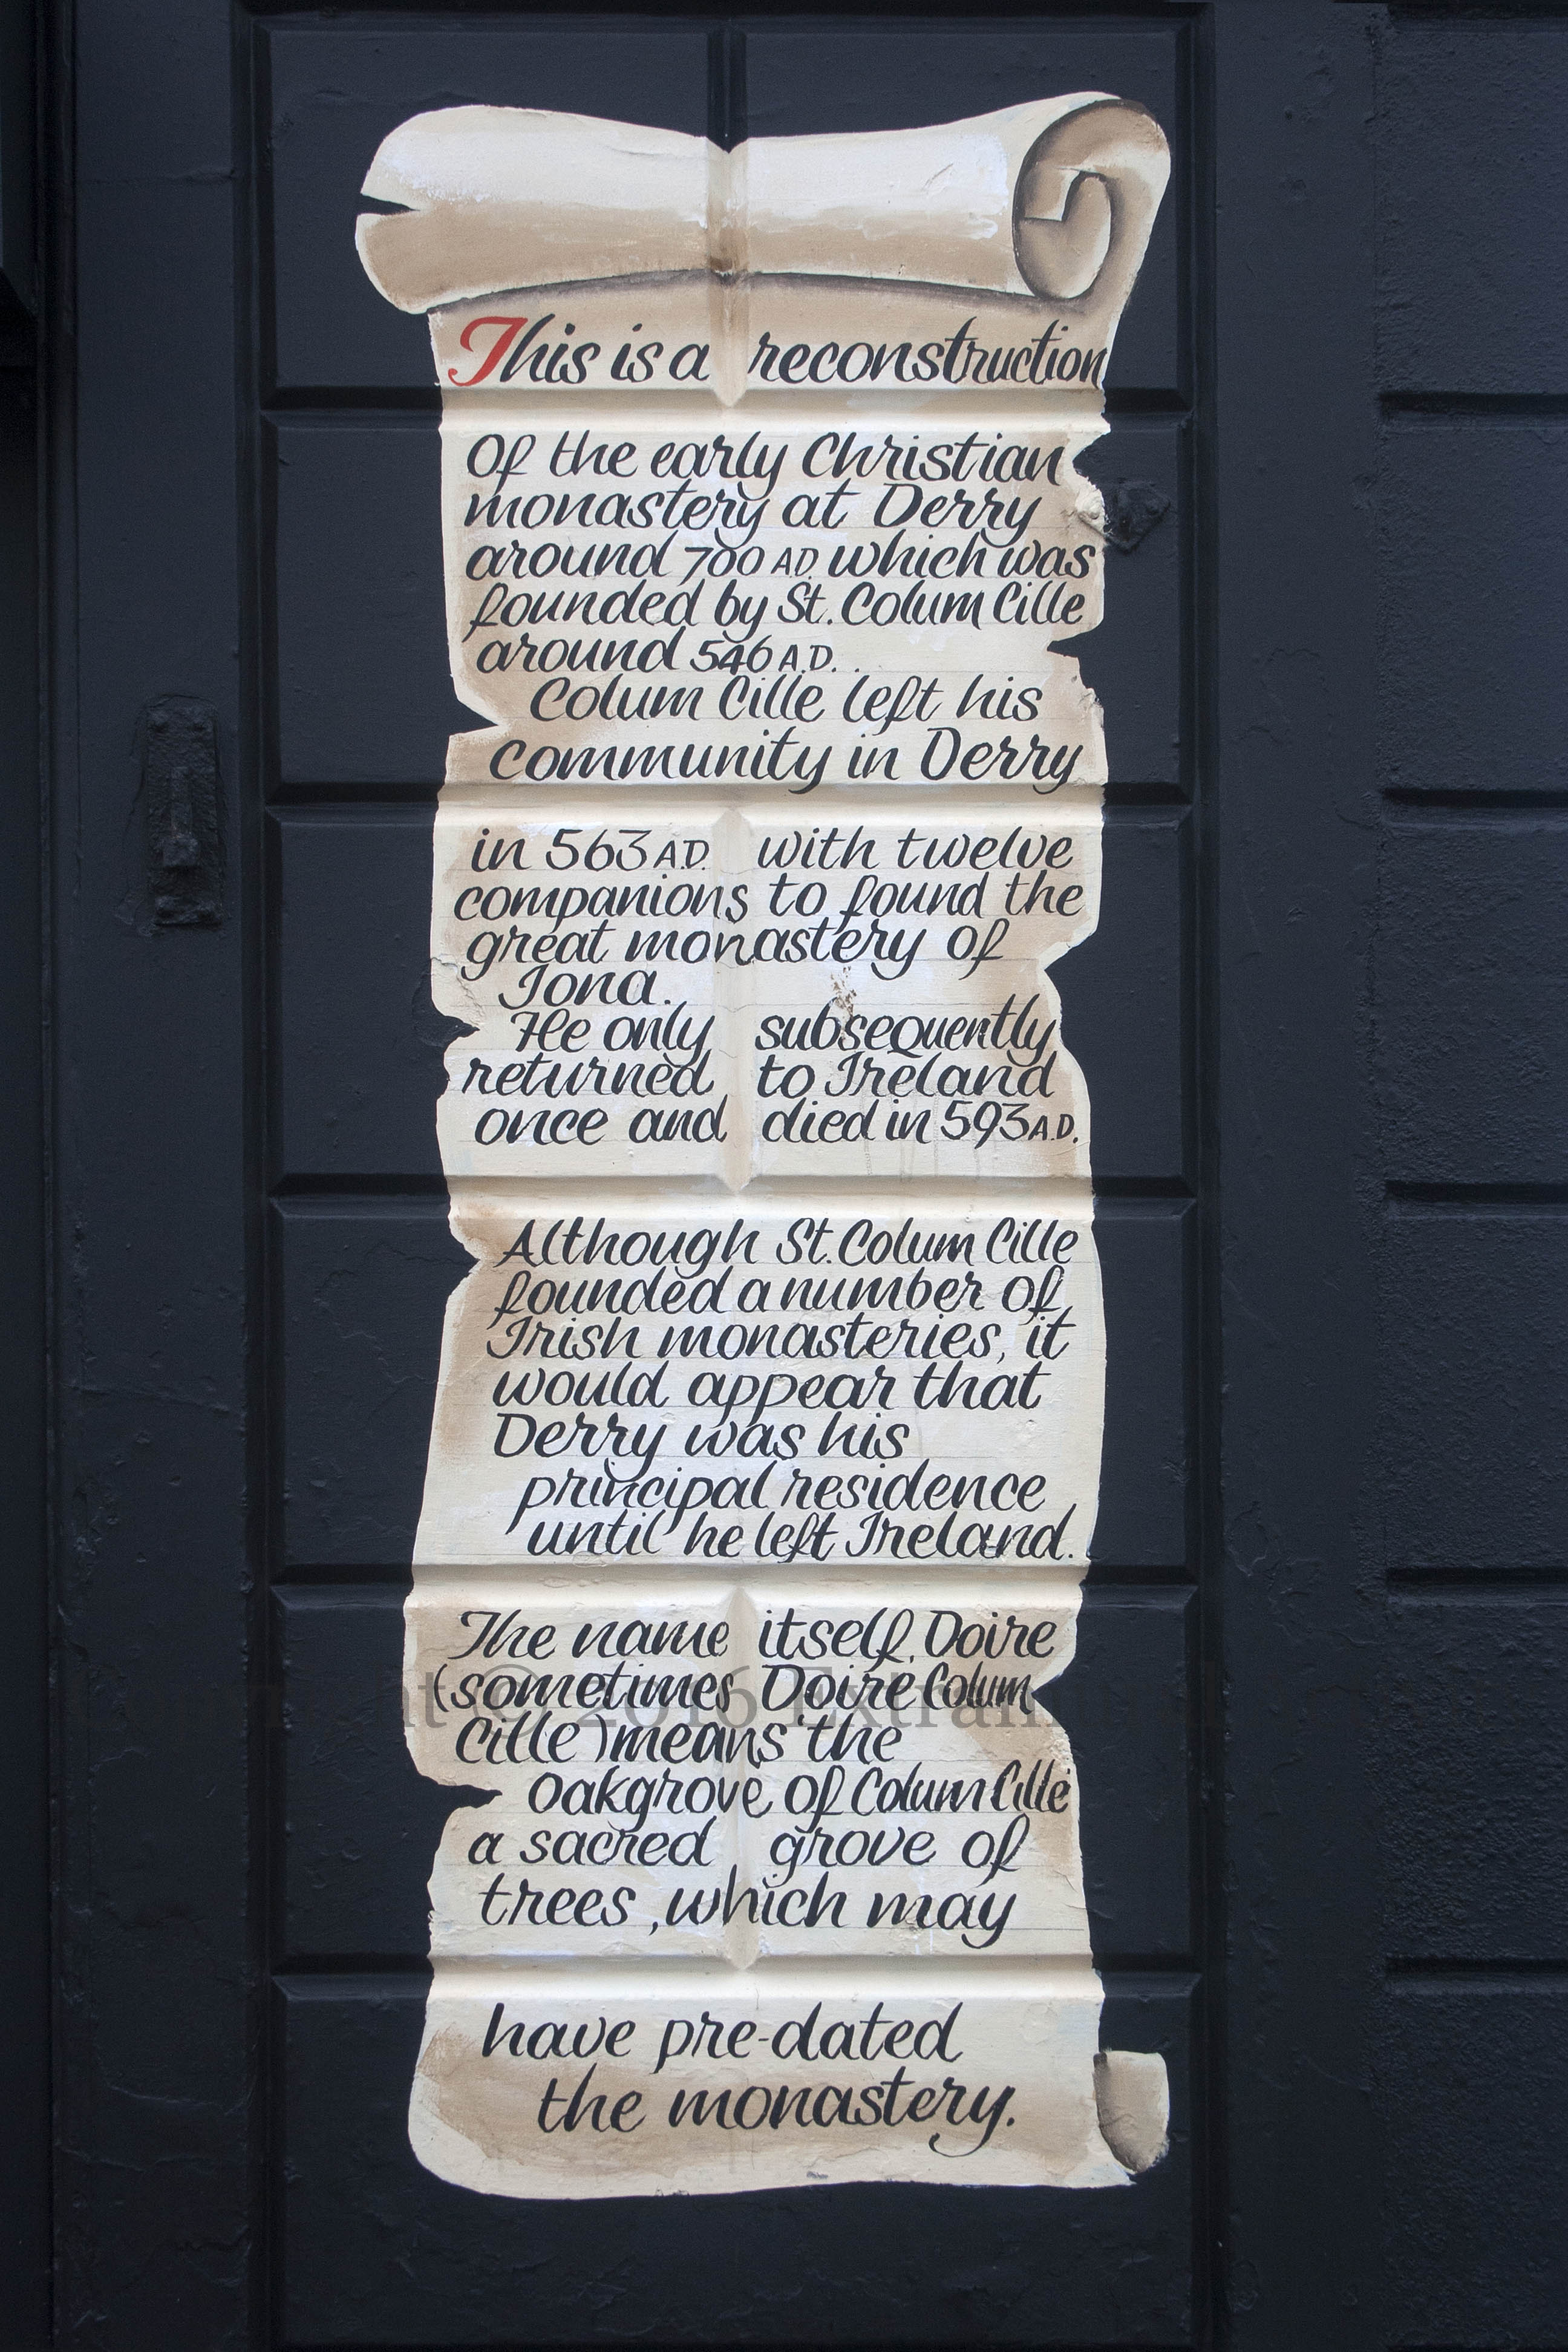 This is a reconstruction
Of the early Christian
monastery at Derry
around 700 AD. which was
founded by St. Colum Cille
around 546 A.D.
Colum Cille left his
community in Derry
in 563 A.D. with twelve
companions to found the
great monastery of
Iona.
He only subsequently
returned to Ireland
once and died in 593 A.D.
Although St. Colum Cille
founded a number of
Irish monasteries, it
would appear that
Derry was his
principal residence
until he left Ireland.
The name itself, Doire
(sometimes Doire Colum
Cille) means 'the
Oakgrove of Colum Cille'
a sacred grove of
trees, which may
have pre-dated
the monastery.
© 2016